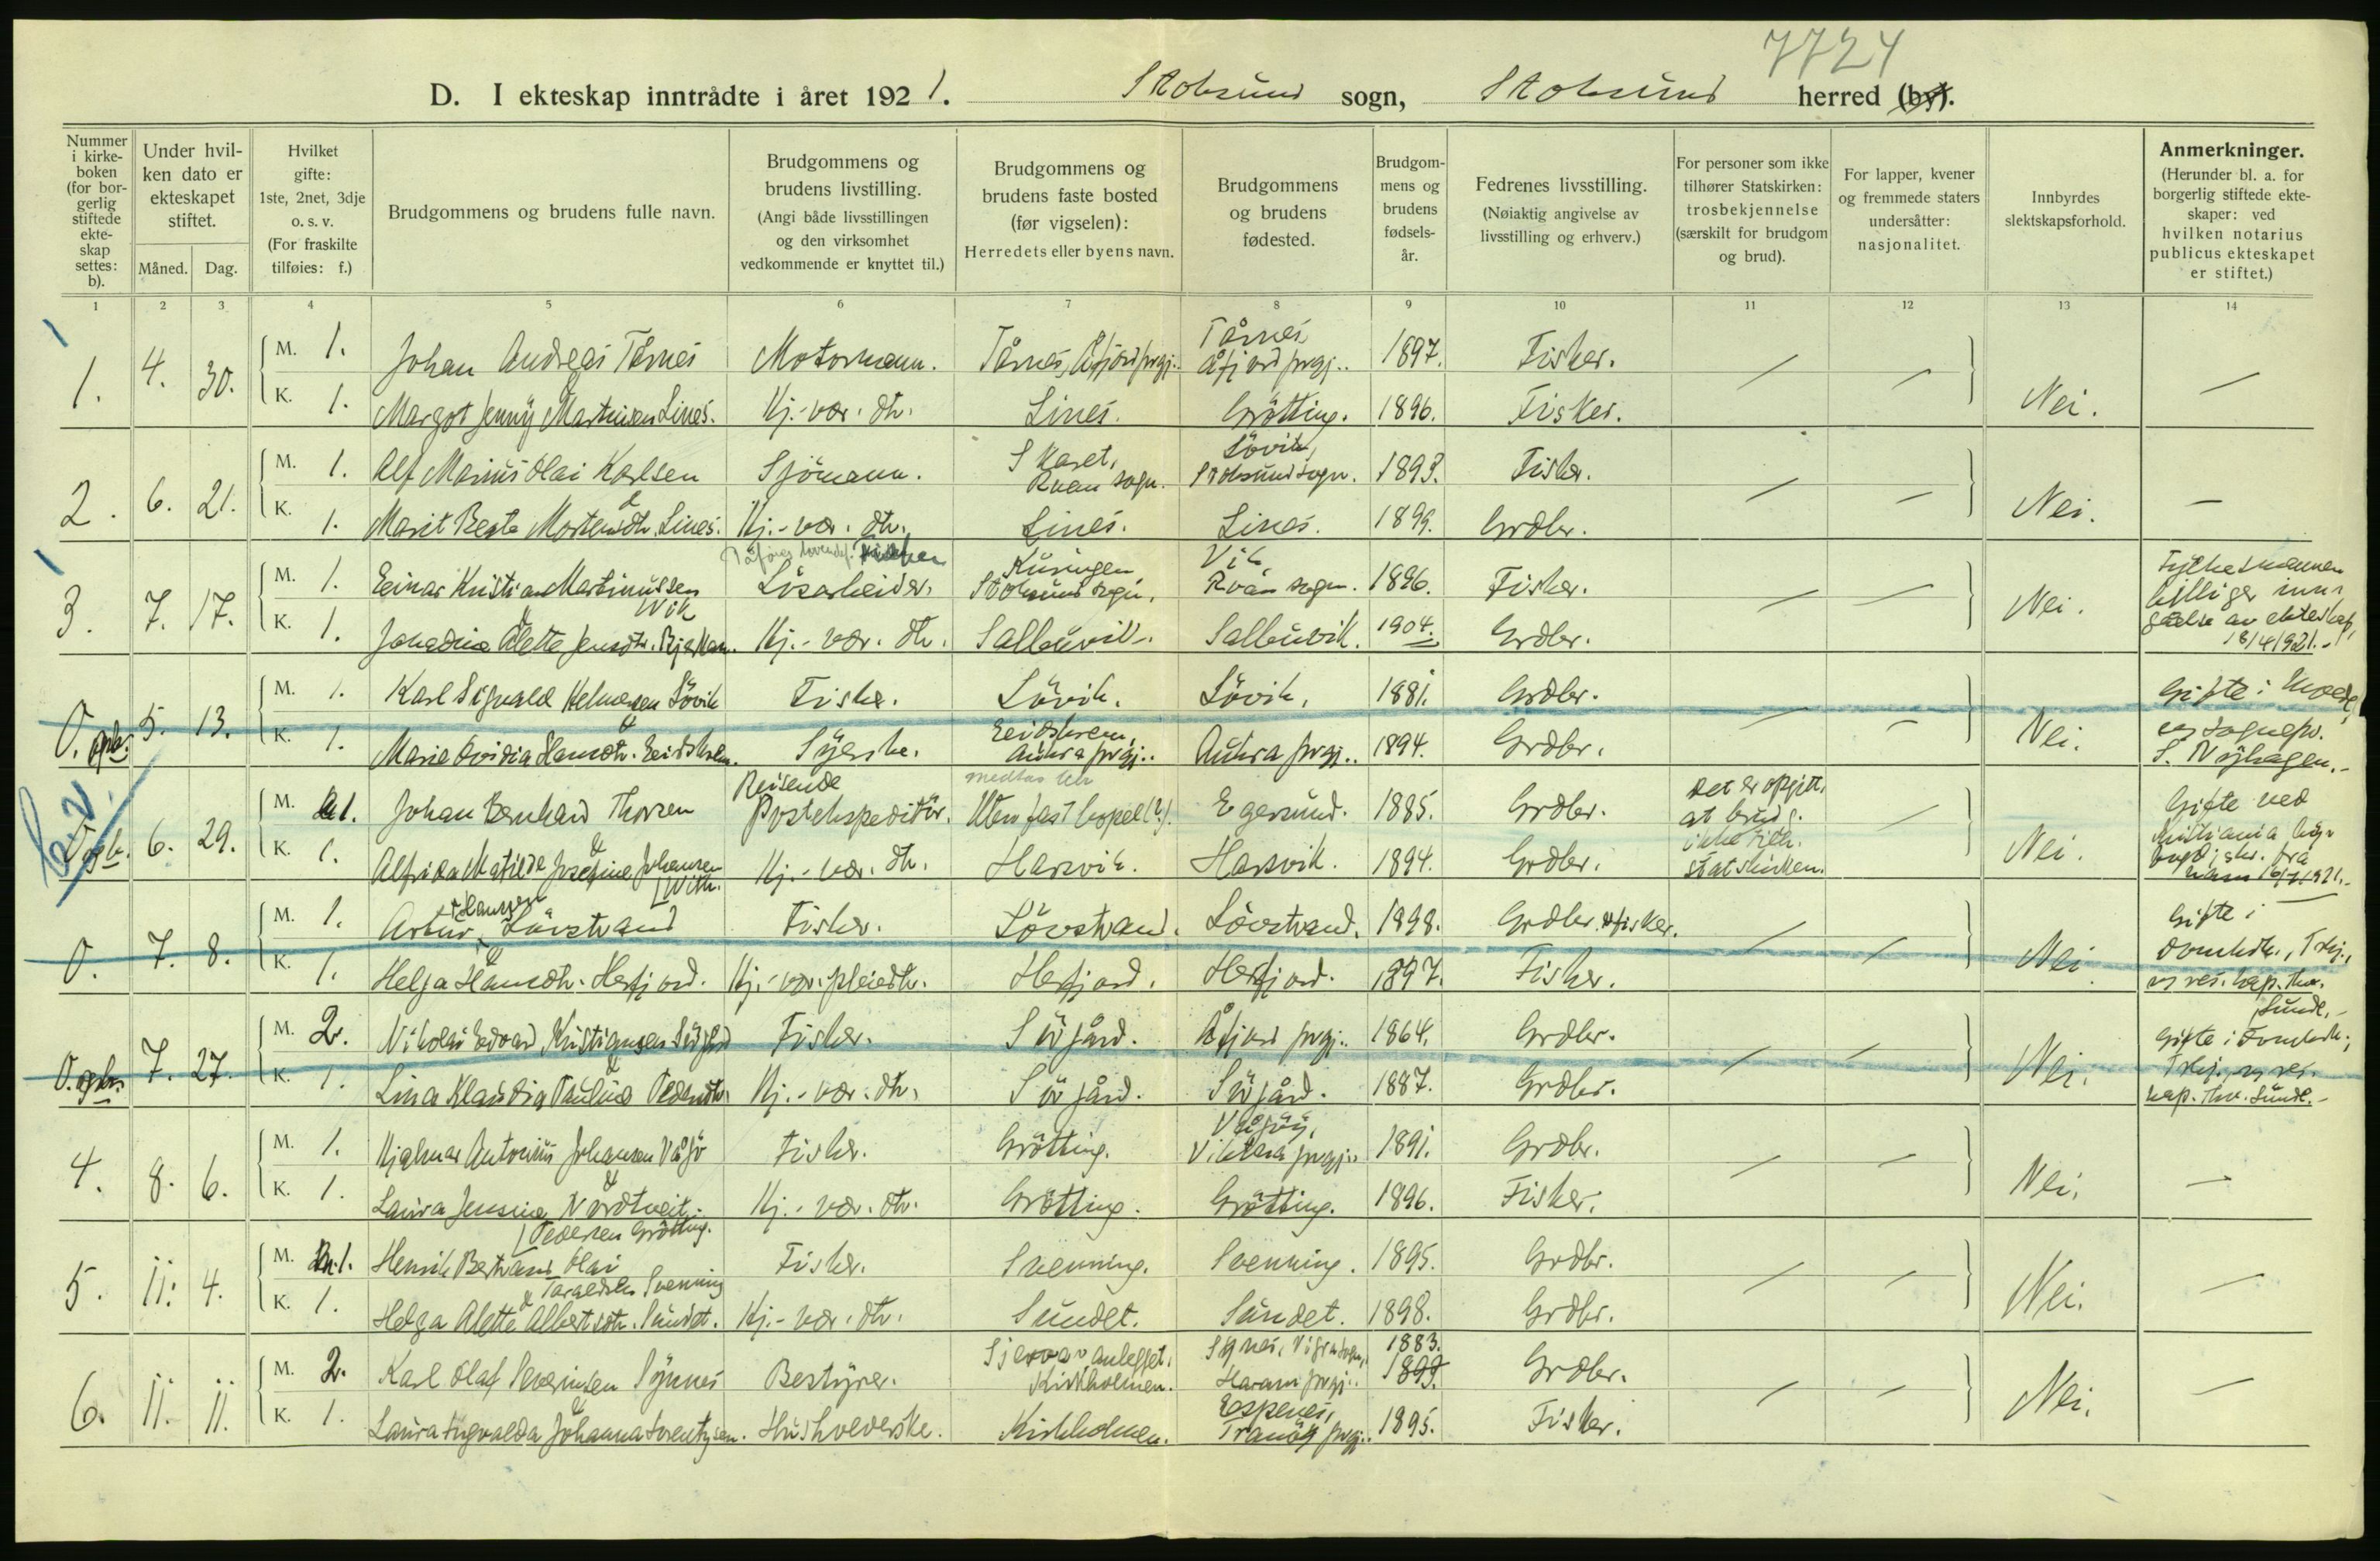 7724
D. I ekteskap inntrådte i året 1921. Stoksund sogn, Stoksund herred (by).
Nummer i kirkeboken (for borgerlig stiftede ekteskap settes: b).
Under hvilken dato er ekteskapet stiftet.
Måned. Dag.
Hvilket gifte: 1ste, 2net, 3dje o. s. v. (For fraskilte tilføies: f.)
Brudgommens og brudens fulle navn.
Brudgommens og brudens livstilling. (Angi både livsstillingen og den virksomhet vedkommende er knyttet til.)
Brudgommens og brudens faste bosted (før vigselen): Herredets eller byens navn.
Brudgommens og brudens fødested.
Brudgommens og brudens fødselsår.
Fedrenes livsstilling. (Nøiaktig angivelse av livsstilling og erhverv.)
For personer som ikke tilhører Statskirken: trosbekjennelse (særskilt for brudgom og brud).
For lapper, kvener og fremmede staters undersåtter: nasjonalitet.
Innbyrdes slektskapsforhold.
Anmerkninger. (Herunder bl. a. for borgerlig stiftede ekteskaper: ved hvilken notarius publicus ekteskapet er stiftet.)
1 2 3 4 5 6 7 8 9 10 11 12 13 14
1. 4. 30. M. 1. Johan Andreas Tårnes Motormann. Tårnes, Åfjord prgj. Tårnes, Åfjord prgj. 1897. Fisker. Nei. —
&
K. 1. Margot Jenny Martinsen Lines. Kj.-vær. dtr. Lines. Grötting. 1896. Fisker.
2. 6. 21. M. 1. Alf Marius Olai Karlsen Sjömann. Skaret, Roan sogn. Lövik, Stoksund sogn. 1893. Fisker. Nei. —
&
K. 1. Marit Beate Mortensdtr. Lines. Kj.-vær. dtr. Lines. Lines. 1899. Grdbr.
3. 7. 17. M. 1. Einar Kristian Martinussen Wik Lösarbeider. Kuringen Stoksund sogn. Vik, Roan sogn. 1896. Fisker. Nei. Fylkesmannen billiger inngåelse av ekteskap, 18/4 1921.-
&
K. 1. Alette Jensdtr. Kj.-vær. dtr. Sallbuvik. Sallbuvik. 1904. Grdbr.
O. opb. 5. 13. M. 1. Karl Sigvald Helmersen Lövik Fisker. Lövik. Lövik. 1881. Grdbr. Nei. Gifte i Molde, av sognepr. S. Nyhagen.-
&
K. 1. Marie Ovidia Hansdtr. Eidskrem. Syerske. Eidskrem, Aukra prgj. Aukra prgj. 1894. Grdbr.
6. 29. M. 1. Johan Bernhard Thorsen Reisende Postekspeditör. Uten fast bopel (?). Egersund. 1885. Grdbr. Det er opgitt, at brudg. ikke tilh. statskirken. Nei. Gifte ved Kristiania
&
K. 1. Alfrida Matilde Josefine Johansen Kj.-vær. dtr. Harsvik. Harsvik. 1894. Grdbr.
O. 7. 8. M. 1. Artur Hansen Lövstrand Fisker. Lövstrand. Lövstrand. 1898. Grdbr. & fisker. Nei. Gifte i Domkirk., Trhj., av res. kap. Thv. Sund.-
&
K. 1. Helga Hansdtr. Herfjord. Kj.-vær. pleiedtr. Herfjord. Herfjord. 1897. Fisker.
O. opb. 7. 27. M. 2. Nikolai Edvard Kristiansen Sörgård Fisker. Sörgård. Åfjord prgj. 1864. Grdbr. Nei. Gifte i Domkirk., Trhj., av res. kap. Thv. Sund.-
&
K. 1. Lina Klaudia Pauline Pedersdtr. Kj.-vær. dtr. Sörgård. Sörgård. 1887. Grdbr.
4. 8. 6. M. 1. Hjalmar Antonius Johansen Vågö Fisker. Grötting. Vågöy, Vikna prgj. 1891. Grdbr. Nei. —
&
K. 1. Laura Jensine Nordtveit Pedersen Grötting. Kj.-vær. dtr. Grötting. Grötting. 1896. Fisker.
5. 11. 4. M. 1. Henrik Bertrand Olai Taraldsen Svenning Fisker. Svenning. Svenning. 1895. Grdbr. Nei. —
&
K. 1. Helga Alette Albertsdtr. Sundet. Kj.-vær. dtr. Sundet. Sundet. 1898. Grdbr.
6. 11. 11. M. 2. Karl Olaf Severinsen Synnes Bestyrer. Kirkholmen. Synes, Vigra sogn, Haram prgj. 1883. 1893. Grdbr. Nei. —
&
K. 1. Laura Ingvalda Johanna Lorentzsen. Husholderske. Kirkholmen. Espenes, Tranöy prgj. 1895. Fisker.